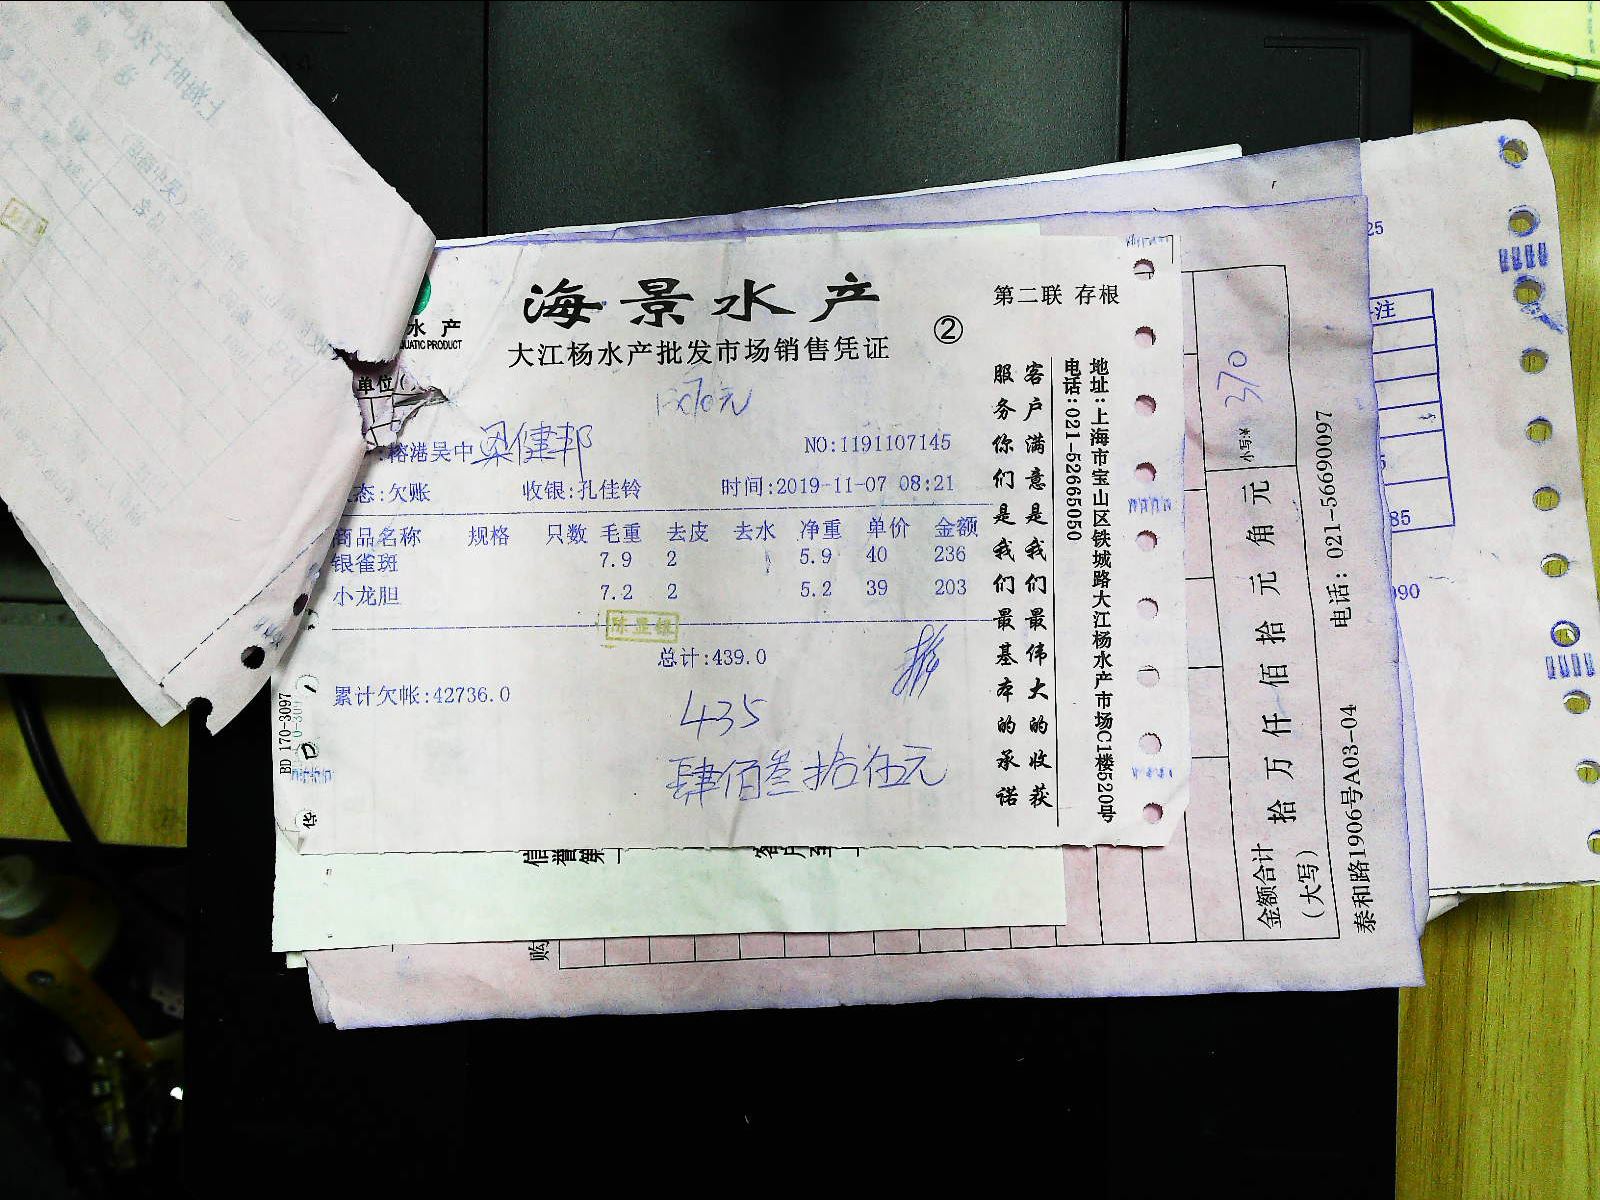 海景水产
第二联 存根
水产
UATIC PRODUCT
大江杨水产批发市场销售凭证
②
单位(
:榕港吴中 梁健邦
NO:1191107145
态:欠账 收银:孔佳铃 时间:2019-11-07 08:21
商品名称 规格 只数 毛重 去皮 去水 净重 单价 金额
银雀斑 7.9 2 5.9 40 236
小龙胆 7.2 2 5.2 39 203
总计:439.0
累计欠帐:42736.0
435
肆佰叁拾伍元
客户满意是我们最伟大的收获
服务你们是我们最基本的承诺
地址:上海市宝山区铁城路大江杨水产市场C1楼520号
电话:021-52665050
BD 170-3097
华
信誉第一
客户至上
购
金额合计
(大写)
拾万仟佰拾元角元
小写:¥ 370
泰和路1906号A03-04
电话: 021-56690097
25
注
5
85
990